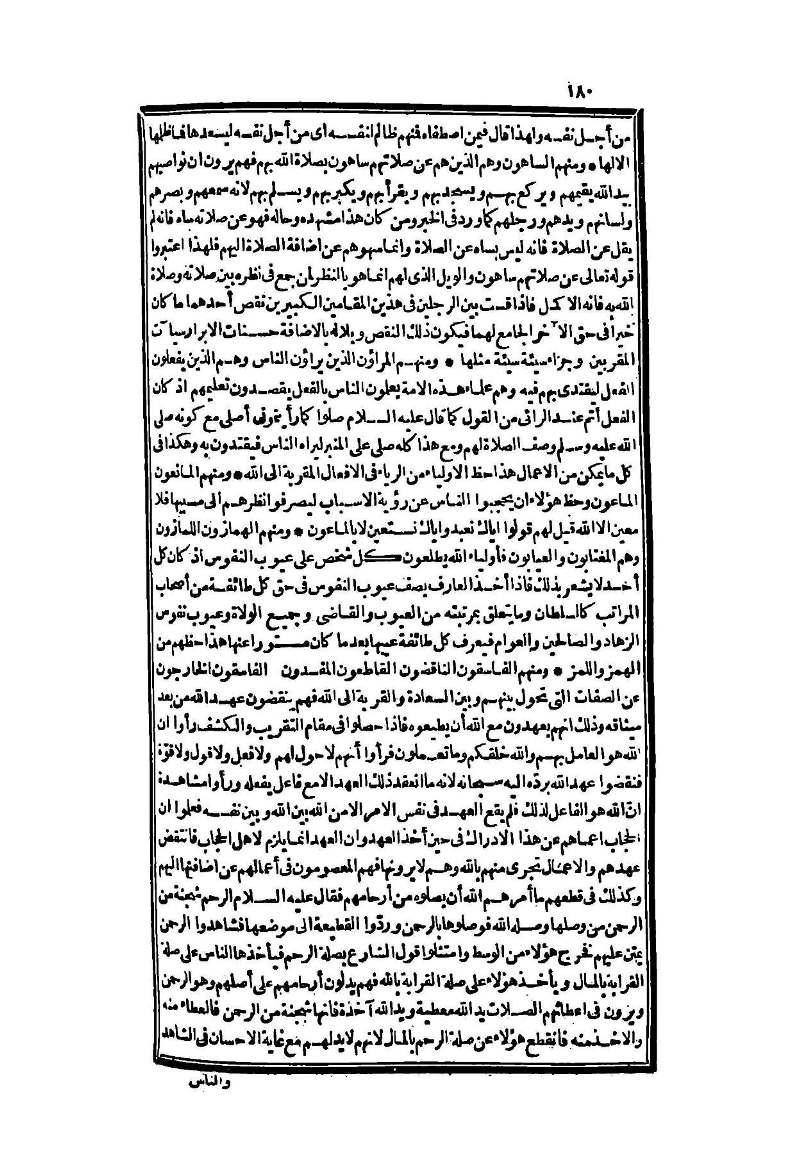 ١٨٠
من أجل نفسه ولهذا قال فيمن اصطفاه فمنهم ظالم لنفسه اى من أجل نفسه ليسعدها فما ظلمها
الا لها • ومنهم الساهون وهم الذين هم عن صلاتهم ساهون بصلاة الله بهم فهم يرون ان نواصيهم
بيد الله يقيمهم ويركع بهم ويسجد بهم ويقرأ بهم ويكبر بهم ويسلم بهم لانه سمعهم وبصرهم
ولسانهم ويدهم ورجلهم كما ورد فى الخبر ومن كان هذا مشهده وحاله فهو عن صلاته ساه فانه لم
يقل عن الصلاة فانه ليس بساه عن الصلاة وانما سهوهم عن اضافة الصلاة اليهم فلهذا اعتبروا
قوله تعالى عن صلاتهم ساهون والويل الذى لهم انما هو بالنظر لمن جمع فى نظره بين صلاته وصلاة
الله به فانه الاكمل فاذا قست بين الرجلين فى هذين المقامين الكبيرين نقص أحدهما ما كان
خيرا فى حق الآخر الجامع لهما فيكون ذلك النقص ويلا له بالاضافة حسنات الابرار سيآت
المقربين وجزاء سيئة سيئة مثلها • ومنهم المراؤن الذين يراؤن الناس وهم الذين يفعلون
الفعل ليقتدى بهم فيه وهم علماء هذه الامة يعلمون الناس بالفعل يقصدون تعليمهم اذ كان
الفعل أتم عند الرائى من القول كما قال عليه السلام صلوا كما رأيتمونى أصلى مع كونه صلى
الله عليه وسلم وصف الصلاة لهم ومع هذا كله صلى على المنبر ليراه الناس فيقتدون به وهكذا فى
كل ما يمكن من الاعمال هذا حظ الاولياء من الرياء فى الافعال المقربة الى الله • ومنهم المانعون
الماعون وحظ هؤلاء ان يحجبوا الناس عن رؤية الاسباب ليصرفوا نظرهم الى مسببها فلا
معين الا الله قيل لهم قولوا اياك نعبد واياك نستعين لا بالماعون • ومنهم الهمازون اللمازون
وهم المغتابون والعيابون فأولياء الله يطلعون كل شخص على عيوب النفوس اذ كان كل
أحد لا يشعر بذلك فاذا أخذ العارف يصف عيوب النفوس فى حق كل طائفة من أصحاب
المراتب كالسلطان وما يتعلق بمرتبته من العيوب والقاضى وجميع الولاة وعيوب نفوس
الزهاد والصالحين والعوام فيعرف كل طائفة عيبها بعد ما كان مستورا عنها هذا حظهم من
الهمز واللمز • ومنهم الفاسقون الناقضون القاطعون المفسدون الفاسقون الخارجون
عن الصفات التى تحول بينهم وبين السعادة والقربة الى الله فهم ينقضون عهد الله من بعد
ميثاقه وذلك انهم يعهدون مع الله أن يطيعوه فاذا حصلوا فى مقام التقريب والكشف رأوا ان
الله هو العامل بهم والله خلقكم وما تعملون فرأوا أنهم لا حول لهم ولا فعل ولا قول ولا قوة
فنقضوا عهد الله برده اليه سبحانه لانه ما انعقد ذلك العهد الا مع فاعل يفعله ورأوا مشاهدة
ان الله هو الفاعل لذلك فلم يقع العهد فى نفس الامر الا من الله بين الله وبين نفسه فعلموا ان
الحجاب اعماهم عن هذا الادراك فى حين أخذ العهد وان العهد انما يلزم لاهل الحجاب فانتقض
عهدهم والاعمال تجرى منهم بالله وهم لا يرونها فهم المعصومون فى أعمالهم عن اضافتها اليهم
وكذلك فى قطعهم ما أمرهم الله أن يصلوه من أرحامهم فقال عليه السلام الرحم شجنة من
الرحمن من وصلها وصله الله فوصلوها بالرحمن وردوا القطيعة الى موضعها فشاهدوا الرحمن
يمتن عليهم فخرج هؤلاء من الوسط وامتثلوا قول الشارع بصلة الرحم فيأخذها الناس على صلة
القرابة بالمال ويأخذ هؤلاء على صلة القرابة بالله فهم يدلون أرحامهم على أصلهم وهو الرحمن
ويرون فى اعطائهم الصلات يد الله معطية ويد الله آخذة فانها شجنة من الرحمن فالعطاء منه
والاخذ منه فانقطع هؤلاء عن صلة الرحم بالمال لانهم لا يد لهم مع غاية الاحسان فى الشاهد
والناس